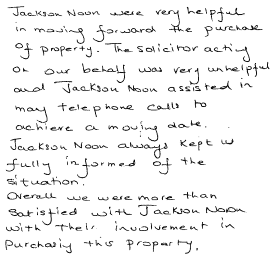 Jackson Noon were very helpful
in moving forward the purchase
of property. The solicitor acting
on our behalf was very unhelpful
and Jackson Noon assisted in
may telephone calls to
achieve a moving date.
Jackson Noon always kept us
fully informed of the
situation.
Overall we were more than
satisfied with Jackson Noon
with their involvement in
purchasing this property.